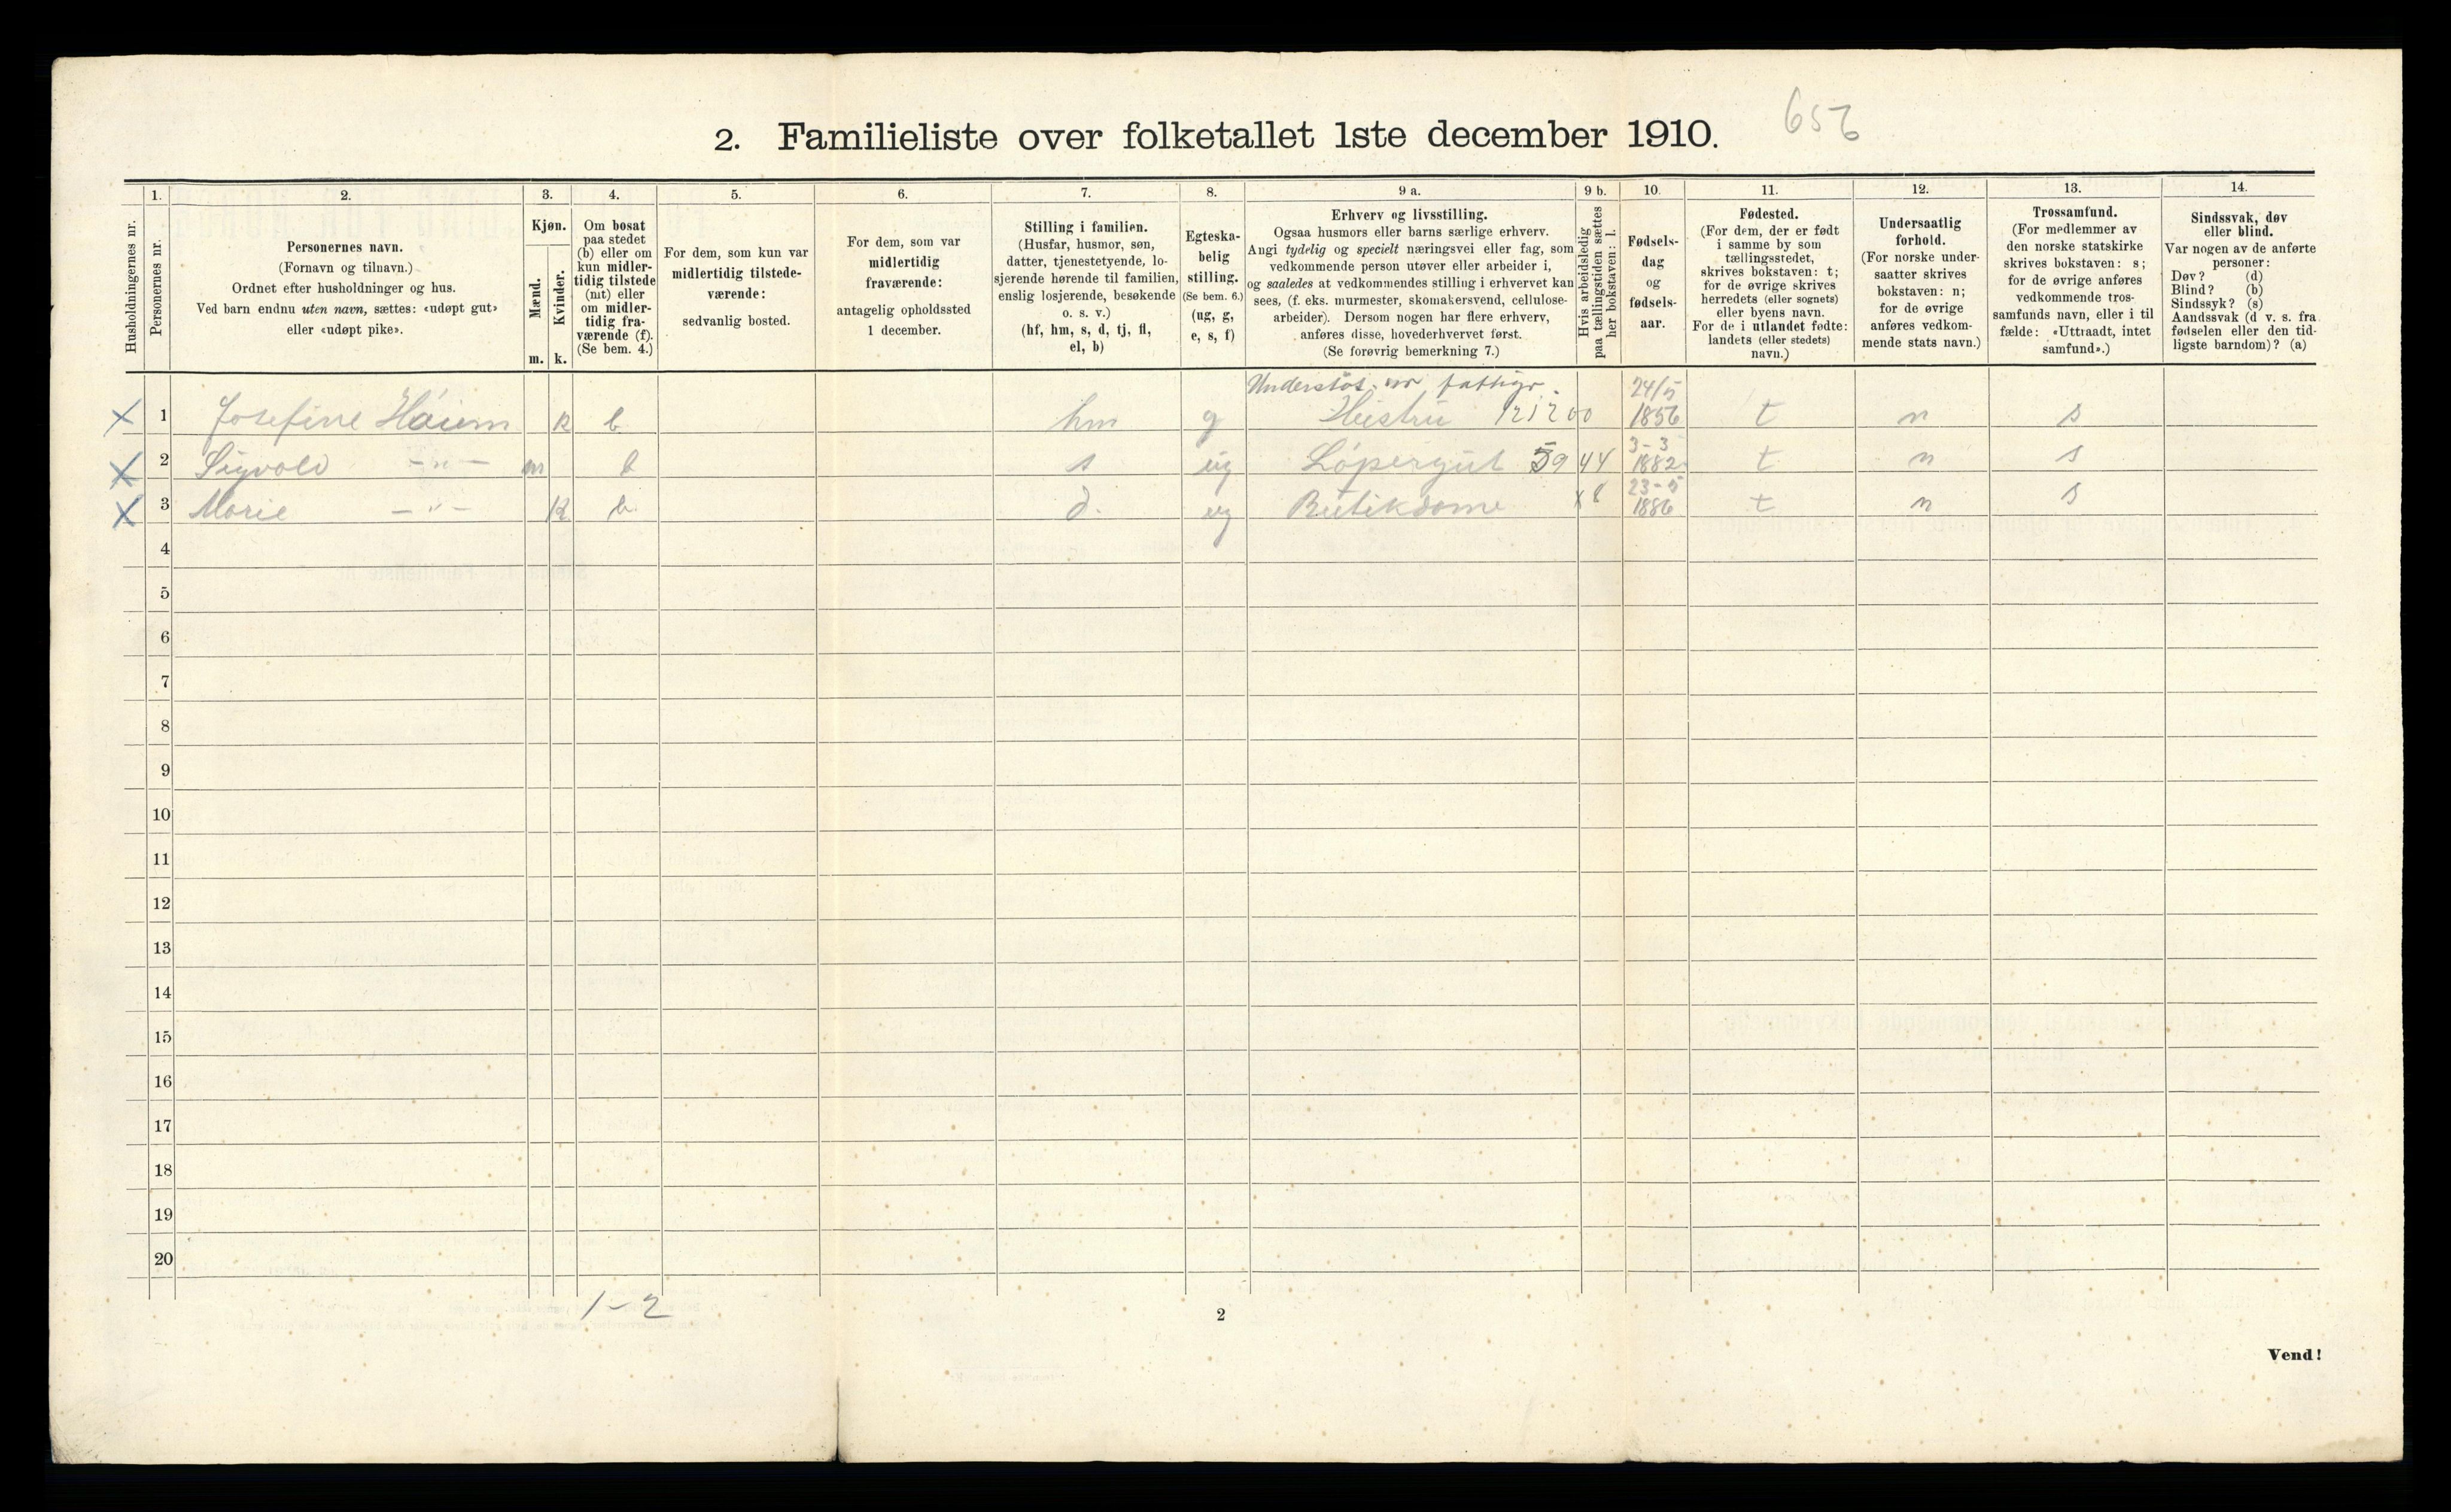 2. Familieliste over folketallet 1ste december 1910. 656
1. 2. 3. 4. 5. 6. 7. 8. 9 a. 9 b. 10. 11. 12. 13. 14.
Husholdningernes nr.
Personernes nr.
Personernes navn.
(Fornavn og tilnavn.)
Ordnet efter husholdninger og hus.
Ved barn endnu uten navn, sættes: «udøpt gut»
eller «udøpt pike».
Kjøn.
Mænd.
Kvinder.
m. k.
Om bosat
paa stedet
(b) eller om
kun midler-
tidig tilstede
(mt) eller
om midler-
tidig fra-
værende (f).
(Se bem. 4.)
For dem, som kun var
midlertidig tilstede-
værende:
sedvanlig bosted.
For dem, som var
midlertidig
fraværende:
antagelig opholdssted
1 december.
Stilling i familien.
(Husfar, husmor, søn,
datter, tjenestetyende, lo-
sjerende hørende til familien,
enslig losjerende, besøkende
o. s. v.)
(hf, hm, s, d, tj, fl,
el, b)
Egteska-
belig
stilling.
(Se bem. 6.)
(ug, g,
e, s, f)
Erhverv og livsstilling.
Ogsaa husmors eller barns særlige erhverv.
Angi tydelig og specielt næringsvei eller fag, som
vedkommende person utøver eller arbeider i,
og saaledes at vedkommendes stilling i erhvervet kan
sees, (f. eks. murmester, skomakersvend, cellulose-
arbeider). Dersom nogen har flere erhverv,
anføres disse, hovederhvervet først.
(Se forøvrig bemerkning 7.)
Hvis arbeidsledig
paa tællingstiden sættes
her bokstaven: l.
Fødsels-
dag
og
fødsels-
aar.
Fødested.
(For dem, der er født
i samme by som
tællingsstedet,
skrives bokstaven: t;
for de øvrige skrives
herredets (eller sognets)
eller byens navn.
For de i utlandet fødte:
landets (eller stedets)
navn.)
Undersaatlig
forhold.
(For norske under-
saatter skrives
bokstaven: n;
for de øvrige
anføres vedkom-
mende stats navn.)
Trossamfund.
(For medlemmer av
den norske statskirke
skrives bokstaven: s;
for de øvrige anføres
vedkommende tros-
samfunds navn, eller i til
fælde: «Uttraadt, intet
samfund».)
Sindssvak, døv
eller blind.
Var nogen av de anførte
personer:
Døv? (d)
Blind? (b)
Sindssyk? (s)
Aandssvak (d v. s. fra
fødselen eller den tid-
ligste barndom)? (a)
Understøt. 24/5
X 1 Josefine Háiem k b hm g 1856 t n s
3-3
X 2 Sigvald -"- m b s ug Løpergut 59 44 1882 t n s
23-5
X 3 Marie -"- k b d. ug Butikdame x8 1886 t n s
4
5
6
7
8
9
10
11
12
13
14
15
16
17
18
19
20
1-2
2
Vend!